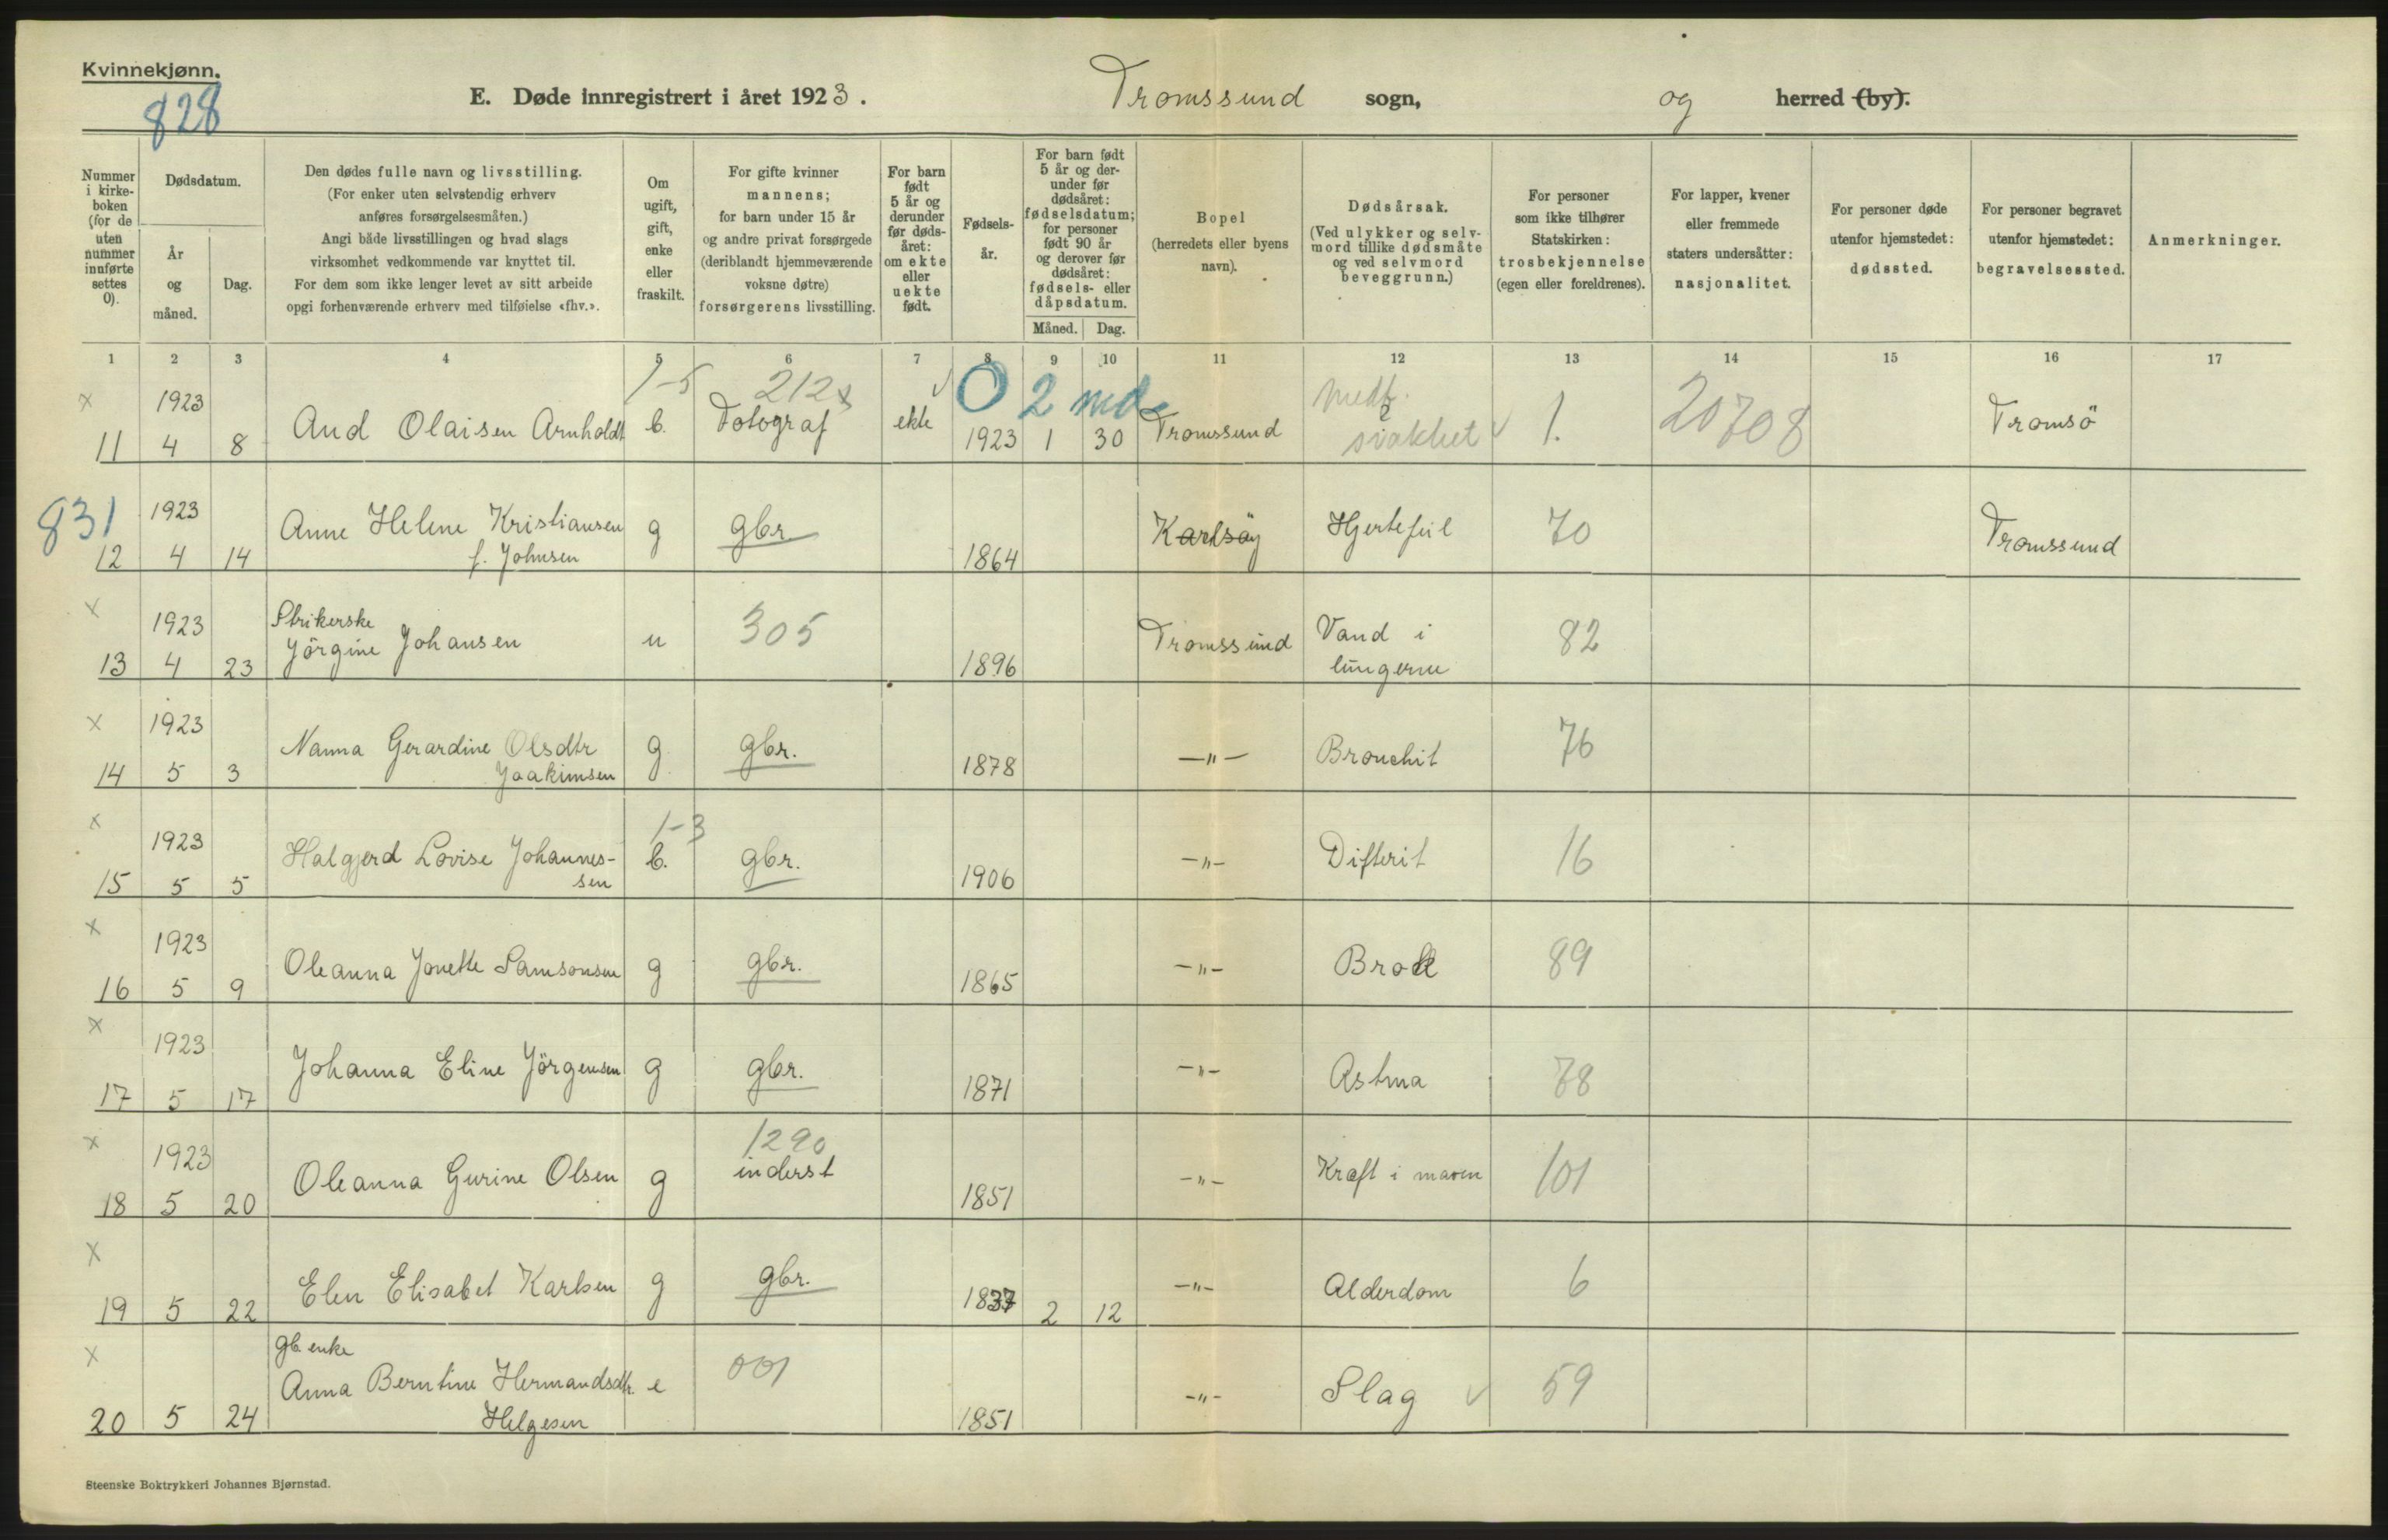 Kvinnekjønn.
828
E. Døde innregistrert i året 1923.
Tromssund sogn, og herred (by).
Nummer i kirke-boken (for de uten nummer innførte settes 0).
Dødsdatum.
År og måned.
Dag.
Den dødes fulle navn og livsstilling.
(For enker uten selvstendig erhverv
anføres forsørgelsesmåten.)
Angi både livsstillingen og hvad slags
virksomhet vedkommende var knyttet til.
For dem som ikke lenger levet av sitt arbeide
opgi forhenværende erhverv med tilføielse «fhv.».
Om ugift, gift, enke eller fraskilt.
For gifte kvinner
mannens;
for barn under 15 år
og andre privat forsørgede
(deriblandt hjemmeværende
voksne døtre)
forsørgerens livsstilling.
For barn født 5 år og derunder før døds-året: om ekte eller uekte født.
Fødsels-år.
For barn født 5 år og der-under før dødsåret: fødselsdatum; for personer født 90 år og derover før dødsåret: fødsels- eller dåpsdatum.
Måned. Dag.
Bopel
(herredets eller byens
navn).
Dødsårsak.
(Ved ulykker og selv-
mord tillike dødsmåte
og ved selvmord
beveggrunn.)
For personer
som ikke tilhører
Statskirken:
trosbekjennelse
(egen eller foreldrenes).
For lapper, kvener
eller fremmede
staters undersåtter:
nasjonalitet.
For personer døde
utenfor hjemstedet:
dødssted.
For personer begravet
utenfor hjemstedet:
begravelsessted.
Anmerkninger.
1 2 3 4 5 6 7 8 9 10 11 12 13 14 15 16 17
x 1923 1-5 212x ✓ 0 2 md. medf.
11 4 8 Aud Olaisen Arnholdt b. Fotograf ekte 1923 1 30 Tromssund svakhet ✓ 1. 20708 Tromsö
831 1923
12 4 14 Anne Helene Kristiansen g gbr 1864 Karlsøy Hjertefeil 70 Tromssund
f. Johnsen
x 1923 Strikerske
13 4 23 Jörgine Johansen u 305 1896 Tromssund Vand i 82
lungerne
x 1923
14 5 3 Nanna Gerardine Olsdtr g. gbr. 1878 —"— Bronchit 76
Joakimsen
x 1923 1-3
15 5 5 Halgjerd Lovise Johannes- b. gbr. 1906 —"— Difterit 16
sen
x 1923
16 5 9 Oleanna Jonette Samsonsen g gbr. 1865 —"— Brok 89
x 1923
17 5 17 Johanna Eline Jörgensen g gbr. 1871 —"— Astma 78
x 1923 1290
18 5 20 Oleanna Gurine Olsen g inderst 1851 —"— Kræft i maven 101
x
19 5 22 Elen Elisabet Karlsen g gbr. 1837 2 12 —"— Alderdom 6
x gb. enke
20 5 24 Anna Berntine Hermandsdtr. e 001 1851 —"— Slag ✓ 59
Helgesen
Steenske Boktrykkeri Johannes Bjørnstad.